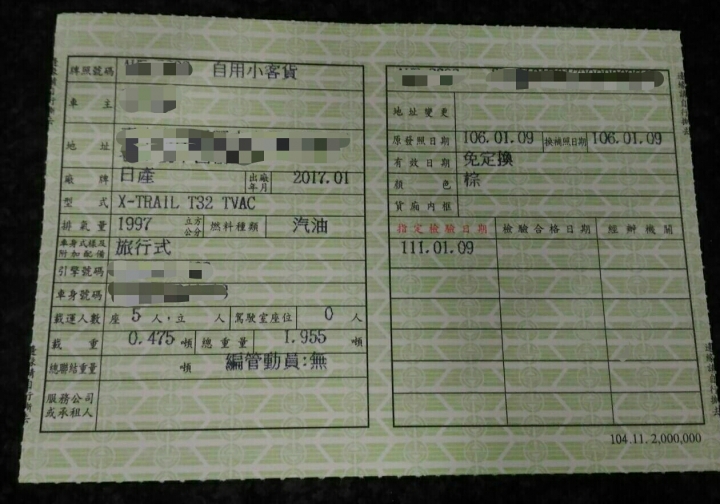 牌照號碼 自用小客貨
車主
地址
廠牌 日產 出廠年月 2017.01
型式 X-TRAIL T32 TVAC
排氣量 1997 立方公分 燃料種類 汽油
車身式樣及附加配備 旅行式
引擎號碼
車身號碼
載運人數 座 5 人,立 人 駕駛室座位 0 人
載重 0.475 噸 總重量 1.955 噸
總聯結重量 噸 編管動員:無
服務公司或承租人
地址變更
原發照日期 106.01.09 換補照日期 106.01.09
有效日期 免定換
顏色 棕
貨廂內框
指定檢驗日期 檢驗合格日期 經辦機關
111.01.09
104.11.2,000,000